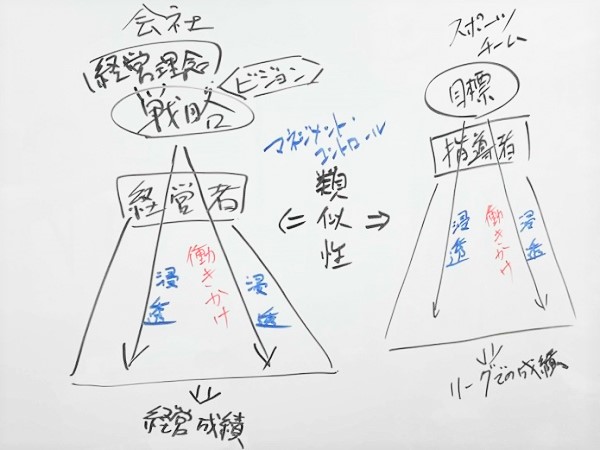 会社
経営理念
ビジョン
戦略
経営者
浸透
働きかけ
浸透
経営成績
マネジメント・
コントロール
類似性
スポーツ
チーム
目標
指導者
浸透
働きかけ
浸透
リーグでの成績